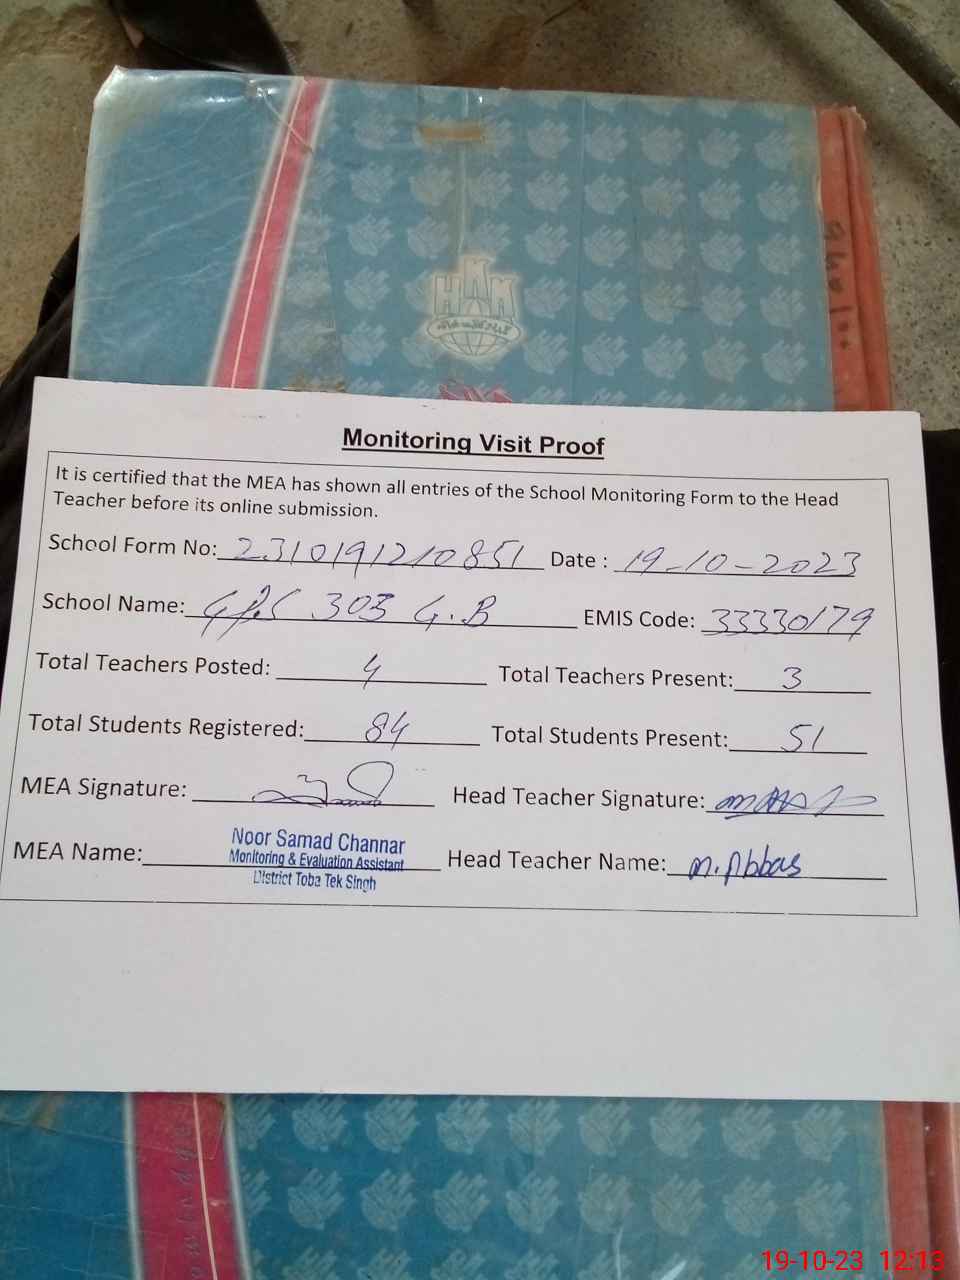 Monitoring Visit Proof
It is certified that the MEA has shown all entries of the School Monitoring Form to the Head
Teacher before its online submission.
School Form No: 2310191210851 Date : 19-10-2023
School Name: GPS 303 G.B EMIS Code: 33330179
Total Teachers Posted: 4 Total Teachers Present: 3
Total Students Registered: 84 Total Students Present: 51
MEA Signature: Head Teacher Signature:
MEA Name: Noor Samad Channar
Monitoring & Evaluation Assistant
District Toba Tek Singh
Head Teacher Name: M. Abbas
19-10-23 12:13